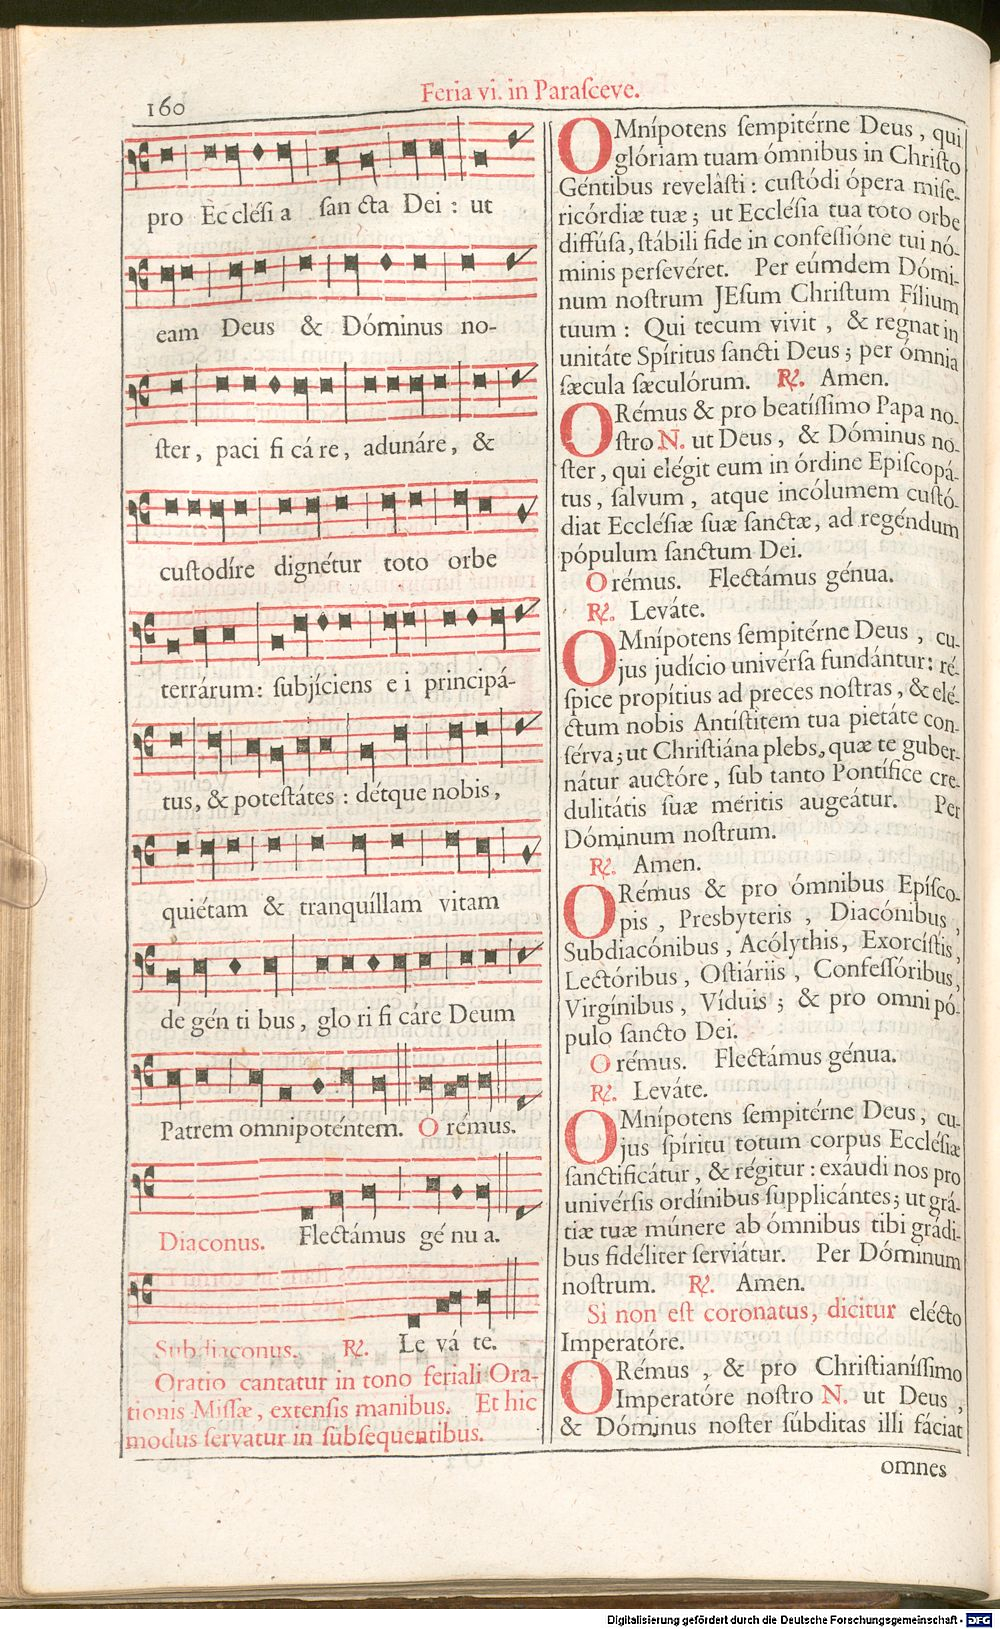 160
Feria vi. in Paraſceve.
pro Ec cléſi a ſan cta Dei : ut
eam Deus & Dóminus no-
ſter, paci fi cá re, adunáre, &
cuſtodíre dignétur toto orbe
terrárum: ſubjíciens e i principá-
tus, & poteſtátes : détque nobis,
quiétam & tranquíllam vitam
de gén ti bus, glo ri fi cáre Deum
Patrem omnipoténtem. O rémus.
Diaconus. Flectámus gé nu a.
Subdiaconus. ℟. Le vá te.
Oratio cantatur in tono feriali Ora-
tionis Miſſæ, extenſis manibus. Et hic
modus ſervatur in ſubſequentibus.
OMnípotens ſempitérne Deus, qui
glóriam tuam ómnibus in Chriſto
Géntibus revelâſti : cuſtódi ópera miſe-
ricórdiæ tuæ; ut Eccléſia tua toto orbe
diffúſa, ſtábili fide in confeſſióne tui nó-
minis perſeveret. Per eúmdem Dómi-
num noſtrum JEſum Chriſtum Fílium
tuum : Qui tecum vivit, & regnat in
unitáte Spíritus ſancti Deus; per ómnia
ſæcula ſæculórum. ℟. Amen.
ORémus & pro beatíſſimo Papa no-
ſtro N. ut Deus, & Dóminus no-
ſter, qui elégit eum in órdine Epiſcopá-
tus, ſalvum, atque incólumem cuſtó-
diat Eccléſiæ ſuæ ſanctæ, ad regéndum
pópulum ſanctum Dei.
O rémus. Flectámus génua.
℟. Leváte.
OMnípotens ſempitérne Deus, cu-
jus judício univérſa fundántur: ré-
ſpice propítius ad preces noſtras, & elé-
ctum nobis Antíſtitem tua pietáte con-
ſérva; ut Chriſtiána plebs, quæ te guber-
nátur auctóre, ſub tanto Pontífice cre-
dulitátis ſuæ méritis augeátur. Per
Dóminum noſtrum.
℟. Amen.
ORémus & pro ómnibus Epíſco-
pis, Presbyteris, Diacónibus,
Subdiacónibus, Acólythis, Exorcíſtis,
Lectóribus, Oſtiáriis, Confeſſóribus,
Virgínibus, Víduis; & pro omni pó-
pulo ſancto Dei.
O rémus. Flectámus génua.
℟. Leváte.
OMnípotens ſempitérne Deus, cu-
jus ſpíritu totum corpus Eccléſiæ
ſanctificátur, & régitur : exáudi nos pro
univérſis ordínibus ſupplicántes; ut grá-
tiæ tuæ múnere ab ómnibus tibi grádi-
bus fidéliter ſerviátur. Per Dóminum
noſtrum. ℟. Amen.
Si non eſt coronatus, dicitur elécto
Imperatóre.
ORémus, & pro Chriſtianíſſimo
Imperatóre noſtro N. ut Deus,
& Dóminus noſter ſúbditas illi fáciat
omnes
Digitalisierung gefördert durch die Deutsche Forschungsgemeinschaft - DFG